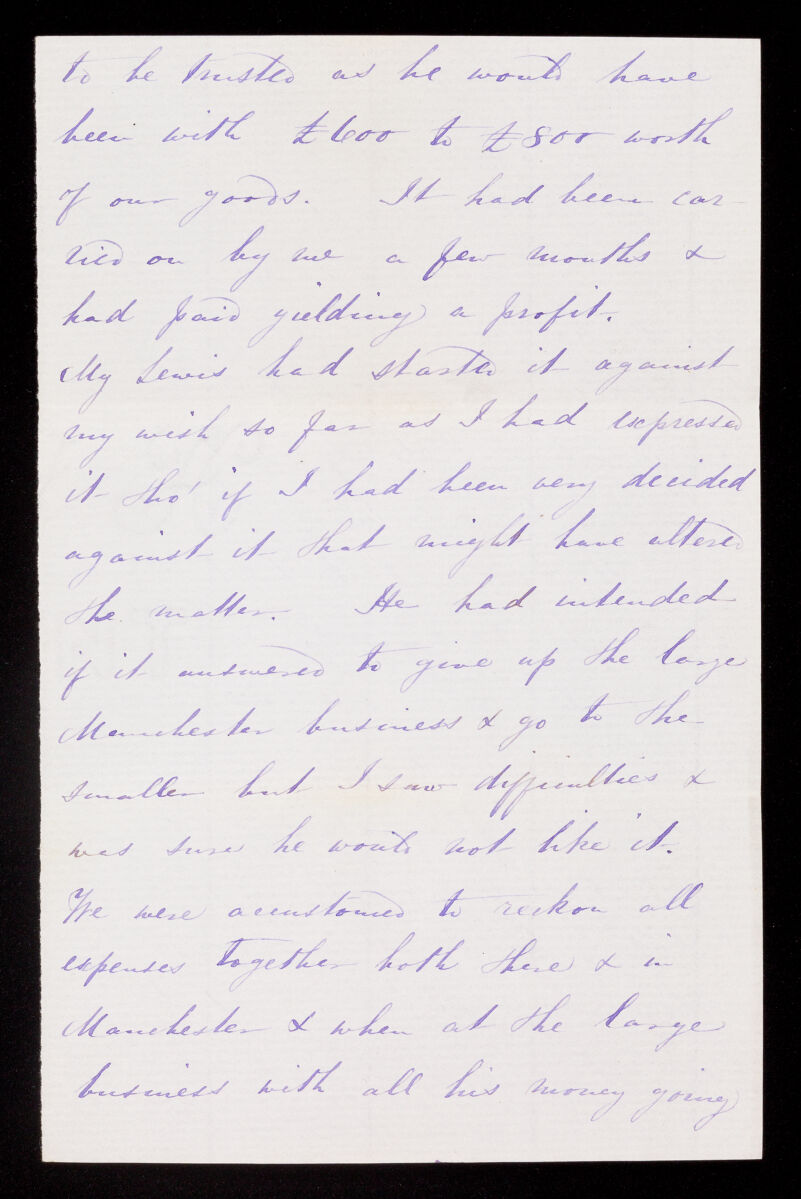 to be trusted as he would have
been with £600 to £800 worth
of our goods. It had been car-
ried on by me a few months &
had paid yielding a profit.
My Lewis had started it against
my wish so far as I had expressed
it tho' if I had been very decided
against it that might have altered
the matter. He had intended
if it answered to give up the large
Manchester business & go to the
smaller but I saw difficulties &
was sure he would not like it.
We were accustomed to reckon all
expenses together both there & in
Manchester & when at the large
business with all his money going